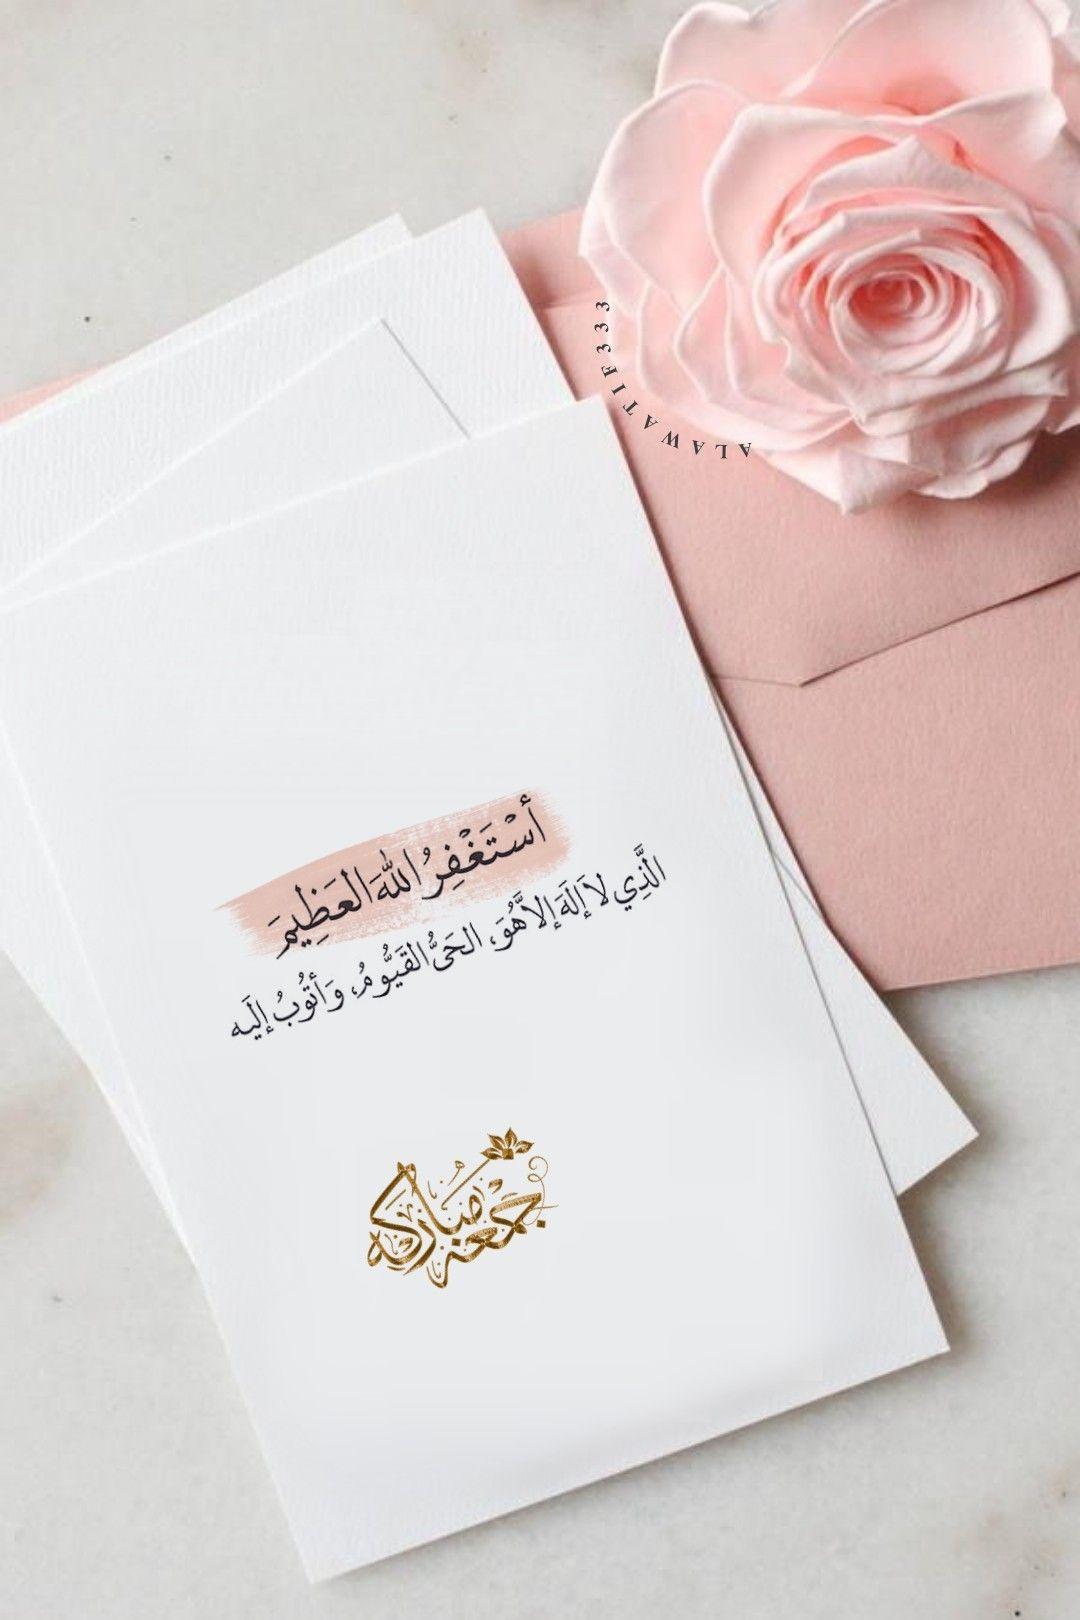 ALAWATIF333
أَسْتَغْفِرُ اللّٰهَ العَظِيمَ
الَّذِي لاَ إلَهَ إلاَّ هُوَ، الحَىُّ القَيُّومُ، وَأتُوبُ إلَيه
جمعة مباركة